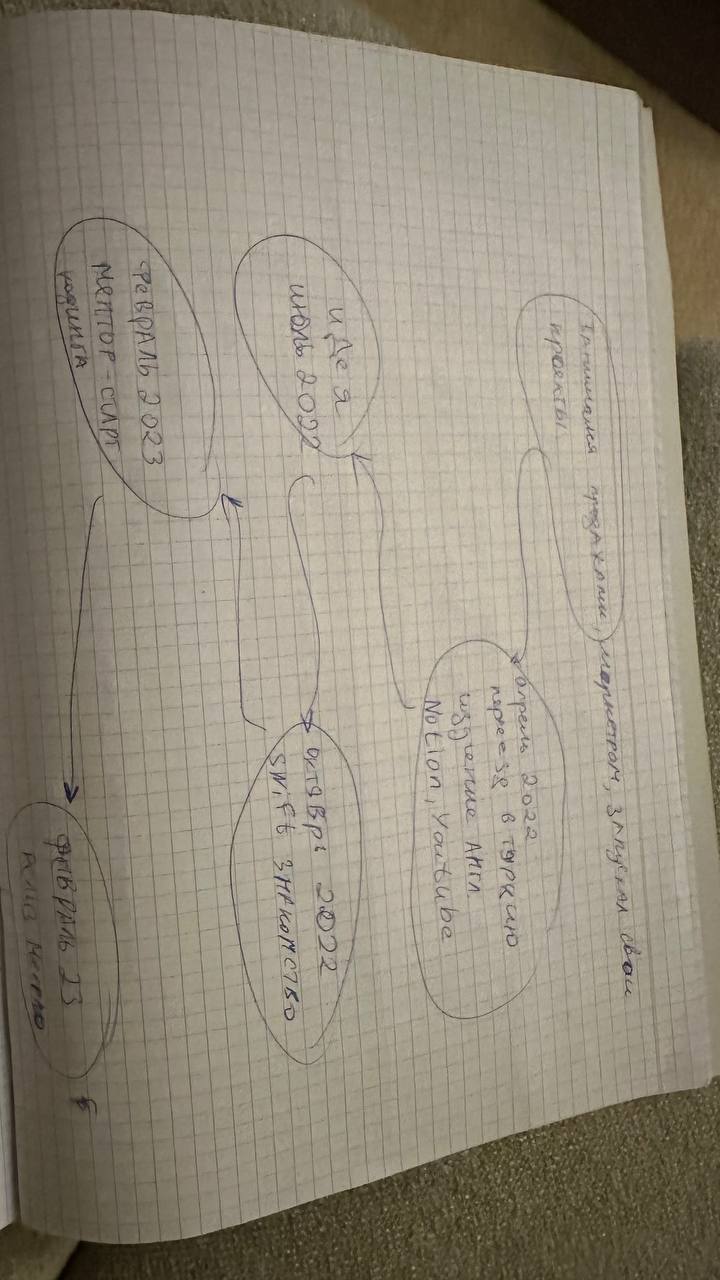 Занимался продажами, маркетром, запускал свои
проекты.
апрель 2022
переезд в турцию
изучение Англ
Notion, Youtube
идея
июль 2022
октябрь 2022
Swift знакомство
февраль 2023
ментор-старт
февраль 23
релиз